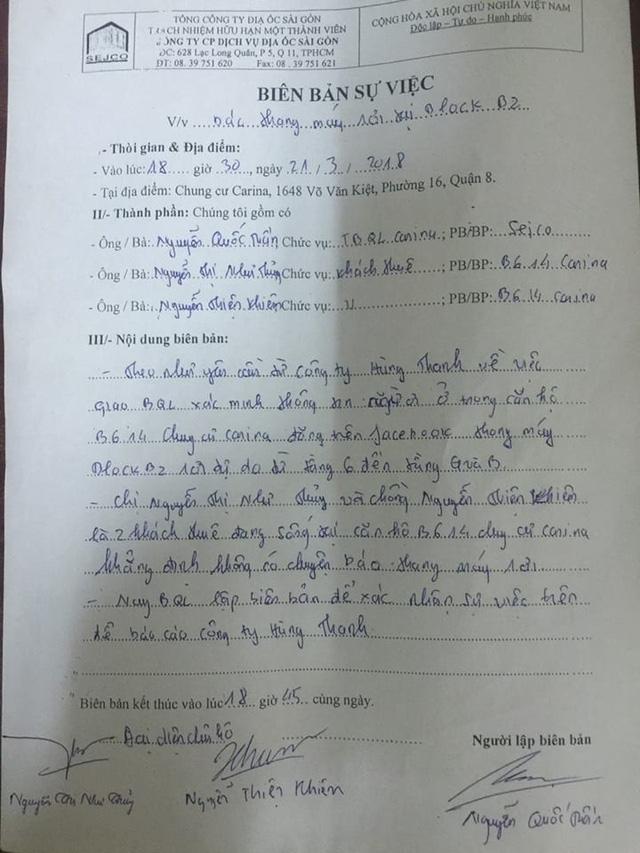 TỔNG CÔNG TY ĐỊA ỐC SÀI GÒN
TRÁCH NHIỆM HỮU HẠN MỘT THÀNH VIÊN
CÔNG TY CP DỊCH VỤ ĐỊA ỐC SÀI GÒN
ĐC: 628 Lạc Long Quân, P 5, Q 11, TPHCM
ĐT: 08. 39 751 620 Fax: 08. 39 751 621
SEJCO
CỘNG HÒA XÃ HỘI CHỦ NGHĨA VIỆT NAM
Độc lập – Tự do – Hạnh phúc
BIÊN BẢN SỰ VIỆC
V/v thang máy rơi tại Block B2
- Thời gian & Địa điểm:
- Vào lúc: 18 giờ 30, ngày 21 / 3 / 2018
- Tại địa điểm: Chung cư Carina, 1648 Võ Văn Kiệt, Phường 16, Quận 8.
II/- Thành phần: Chúng tôi gồm có
- Ông / Bà: Nguyễn Quốc Tuấn Chức vụ: T.BQL Carina; PB/BP: Sejco
- Ông / Bà: Nguyễn Thị Như Thủy Chức vụ: Khách thuê; PB/BP: B6.14 Carina
- Ông / Bà: Nguyễn Thiện Khiêm Chức vụ: ; PB/BP: B6.14 Carina
III/- Nội dung biên bản:
- Theo như yêu cầu từ công ty Hùng Thanh về việc
giao BQL xác minh thông tin người ở trong căn hộ
B6.14 Chung cư Carina đăng trên facebook thang máy
Block B2 rơi tự do từ tầng 6 đến tầng G và B.
- Chị Nguyễn Thị Như Thủy và chồng Nguyễn Thiện Khiêm
là 2 khách thuê đang sống tại căn hộ B6.14 chung cư Carina
khẳng định không có chuyện báo thang máy rơi.
- Nay BQL lập biên bản để xác nhận sự việc trên
để báo cáo công ty Hùng Thanh.
Biên bản kết thúc vào lúc 18 giờ 45 cùng ngày.
Đại diện căn hộ
Người lập biên bản
Nguyễn Thị Như Thủy
Nguyễn Thiện Khiêm
Nguyễn Quốc Tuấn